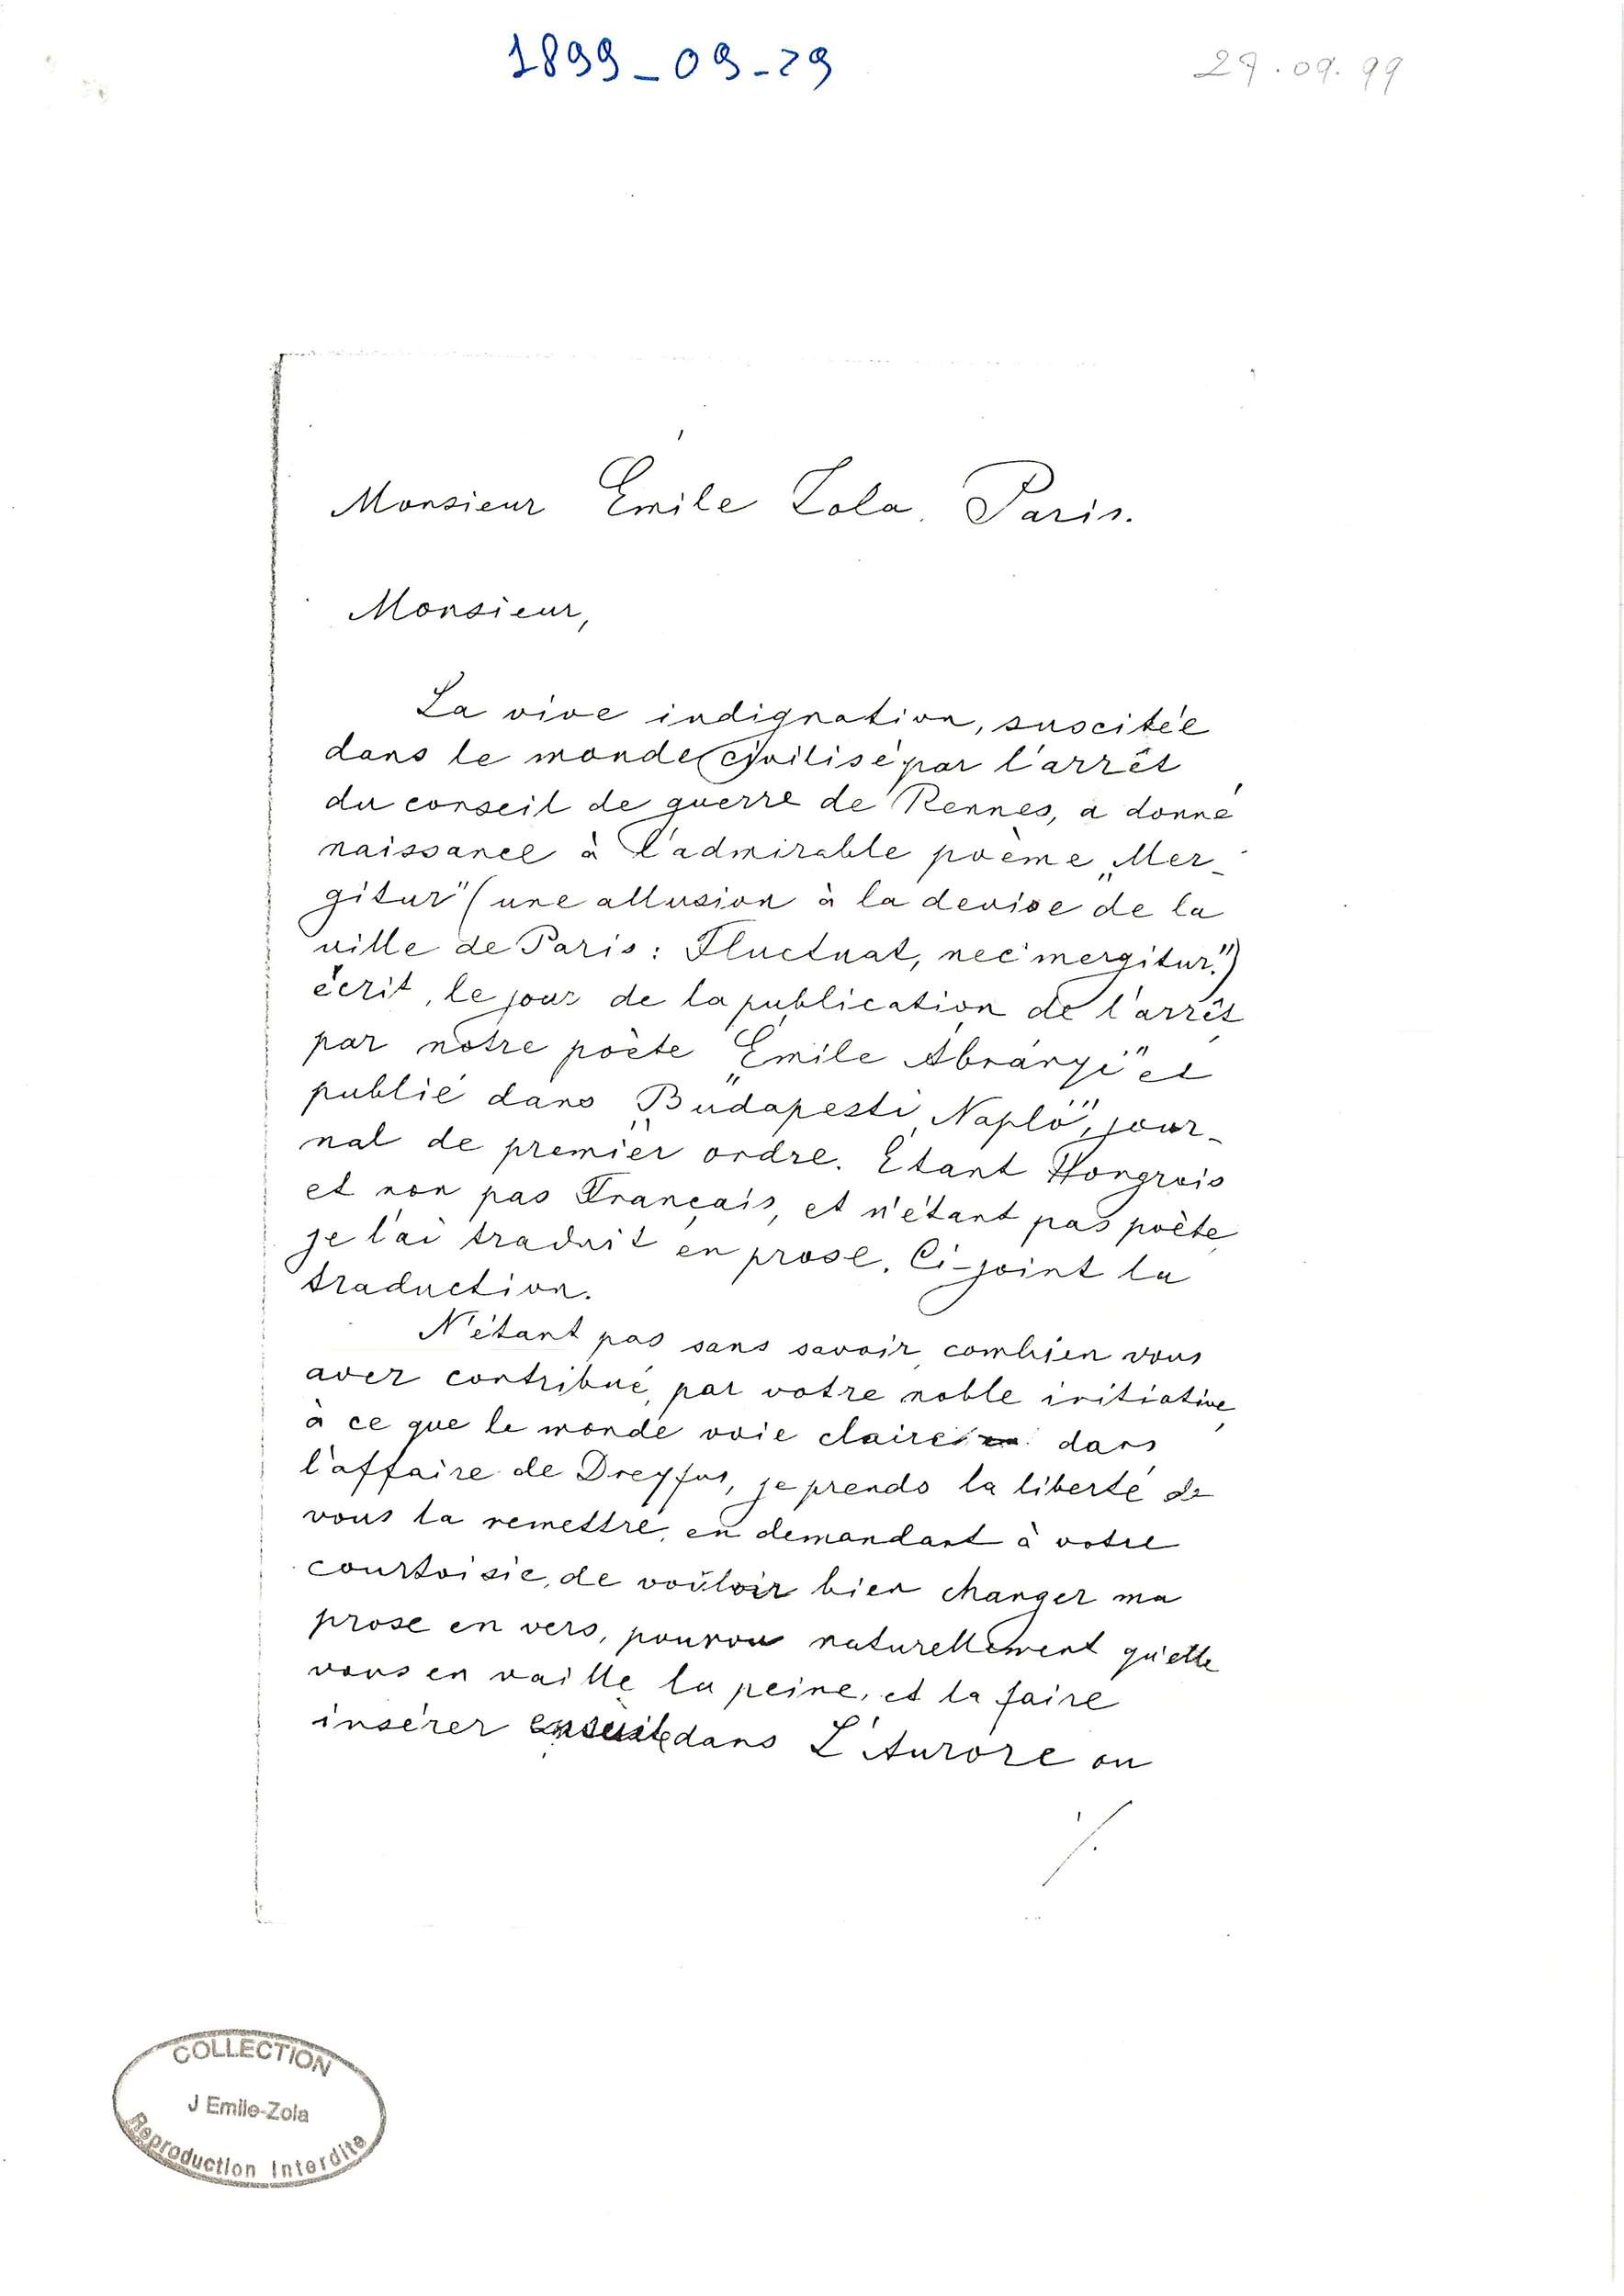 1899_09-29
29.09.99
Monsieur Emile Zola. Paris.
Monsieur,
La vive indignation, suscitée
dans le monde civilisé par l'arrêt
du conseil de guerre de Rennes, a donné
naissance à l'admirable poème „Mer-
gitur" (une allusion à la devise de la
ville de Paris: Fluctuat, nec mergitur.")
écrit, le jour de la publication de l'arrêt
par notre poète „Emile Ábrányi" et
publié dans „Budapesti Napló", jour-
nal de premier ordre. Etant Hongrois
et non pas Français, et n'étant pas poète,
je l'ai traduit en prose. Ci-joint la
traduction.
N'étant pas sans savoir combien vous
avez contribué, par votre noble initiative,
à ce que le monde voie claire dans
l'affaire de Dreyfus, je prends la liberté de
vous la remettre, en demandant à votre
courtoisie, de vouloir bien changer ma
prose en vers, pourvu naturellement qu'elle
vous en vaille la peine, et la faire
insérer ensuite dans L'Aurore ou
./.
COLLECTION
J Emile-Zola
Reproduction Interdite